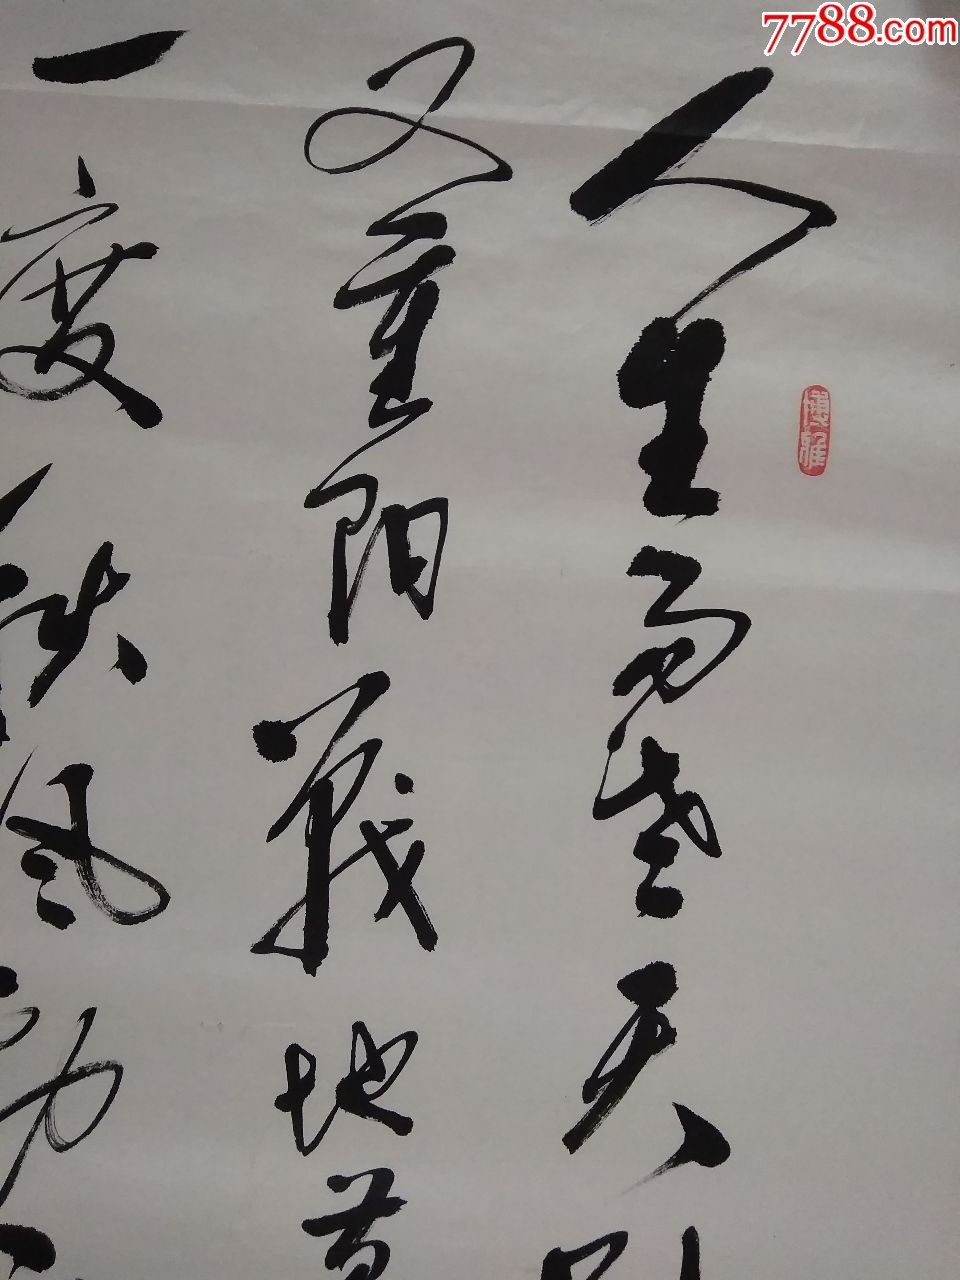 7788.com
人生易老天
又重阳战地
一度秋风劲
博雅